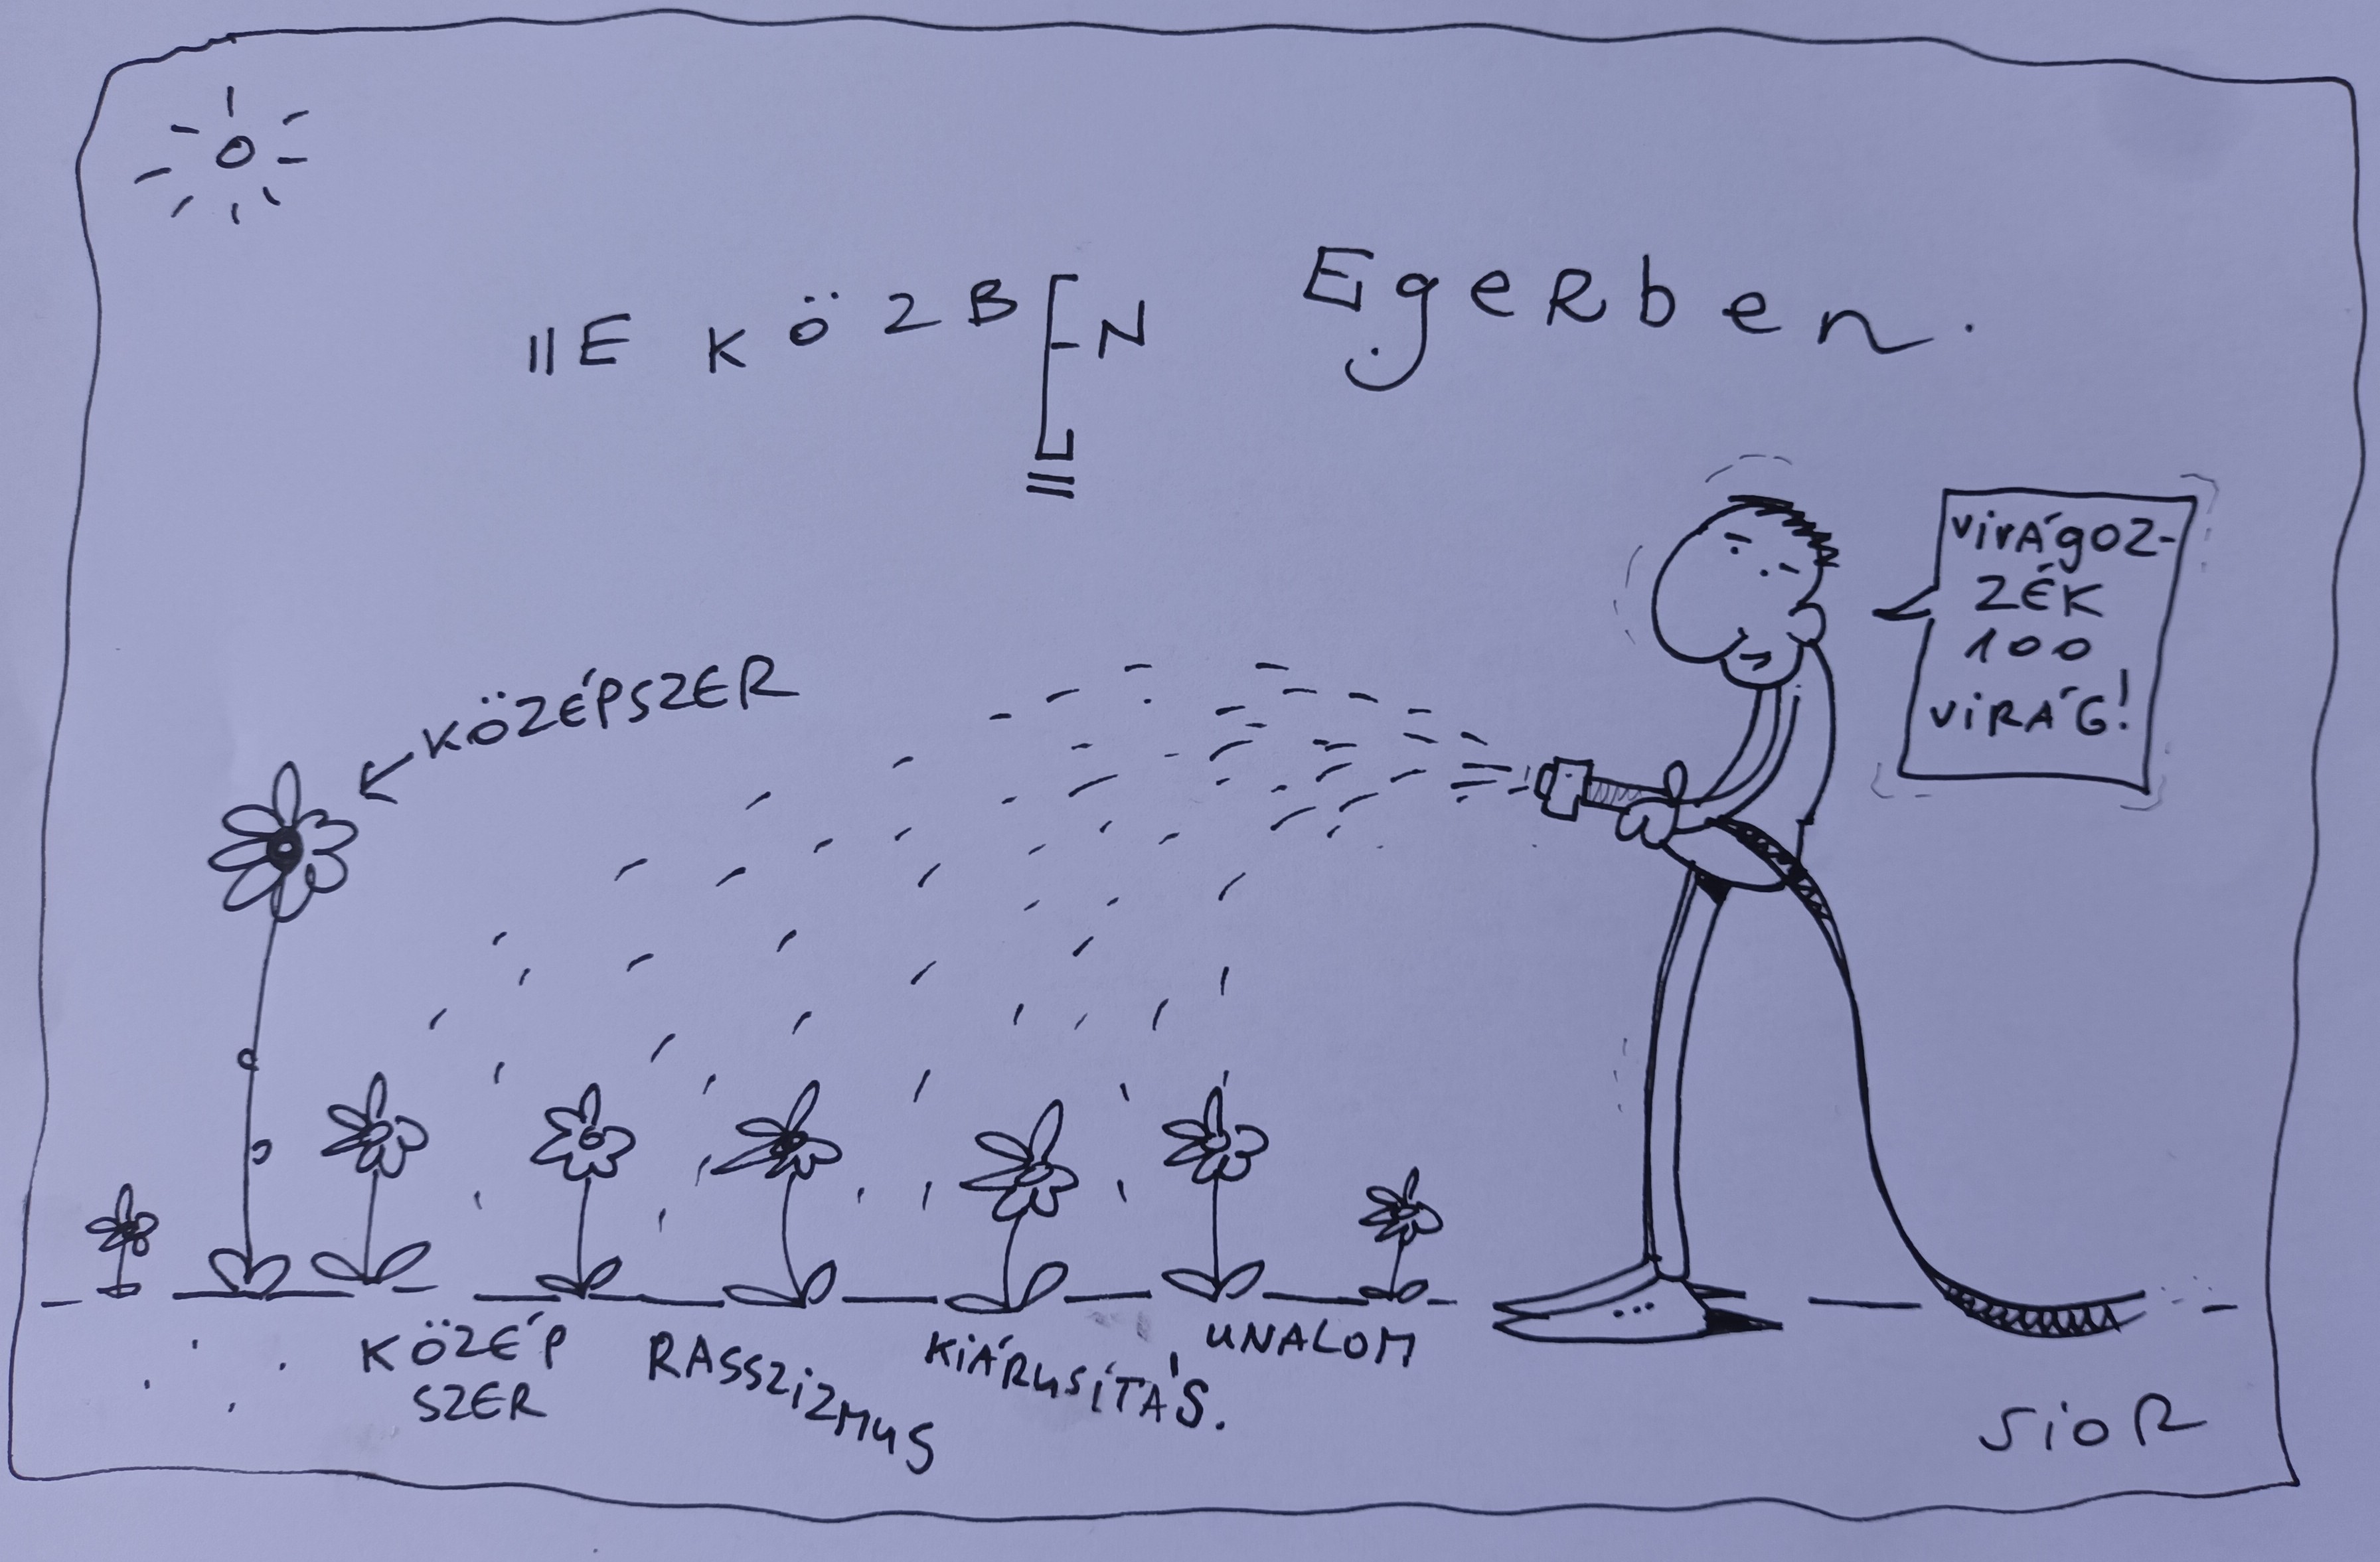 "E KÖZBEN Egerben.
VIRÁGOZ-
ZÉK
100
VIRÁG!
KÖZÉPSZER
KÖZÉP
SZER
RASSZIZMUS
KIÁRUSÍTÁS.
UNALOM
SIOR